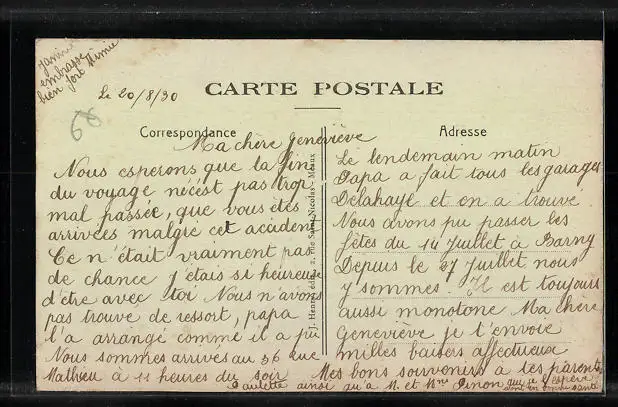 Janine
embrasse
bien fort Mimie
Le 20/8/30
CARTE POSTALE
68
Correspondance
Adresse
Ma chère Geneviève
Nous esperons que la fin
du voyage n'écest pas trop
mal passée, que vous êtes
arrivées malgré cet accident
Ce n'était vraiment pas
de chance j'étais si heureuse
d'être avec toi Nous n'avons
pas trouve de ressort, papa
l'a arrangé comme il a pu
Nous sommes arrives au 56 rue
Mathieu à 11 heures du soir
J. Henry, édit., 2, rue Saint-Nicolas - Meaux
Le lendemain matin
Papa a fait tous les garages
Delahaye et on a trouve
Nous avons pu passer les
fêtes du 14 Juillet à Barny
Depuis le 27 Juillet nous
y sommes. Il est toujours
aussi monotone Ma chère
Geneviève je t'envoie
milles baisers affectueux
Mes bons souvenirs à tes parents
Paulette ainsi qu'a M. et Mme Pinon qui je l'espère
sont en bonne santé